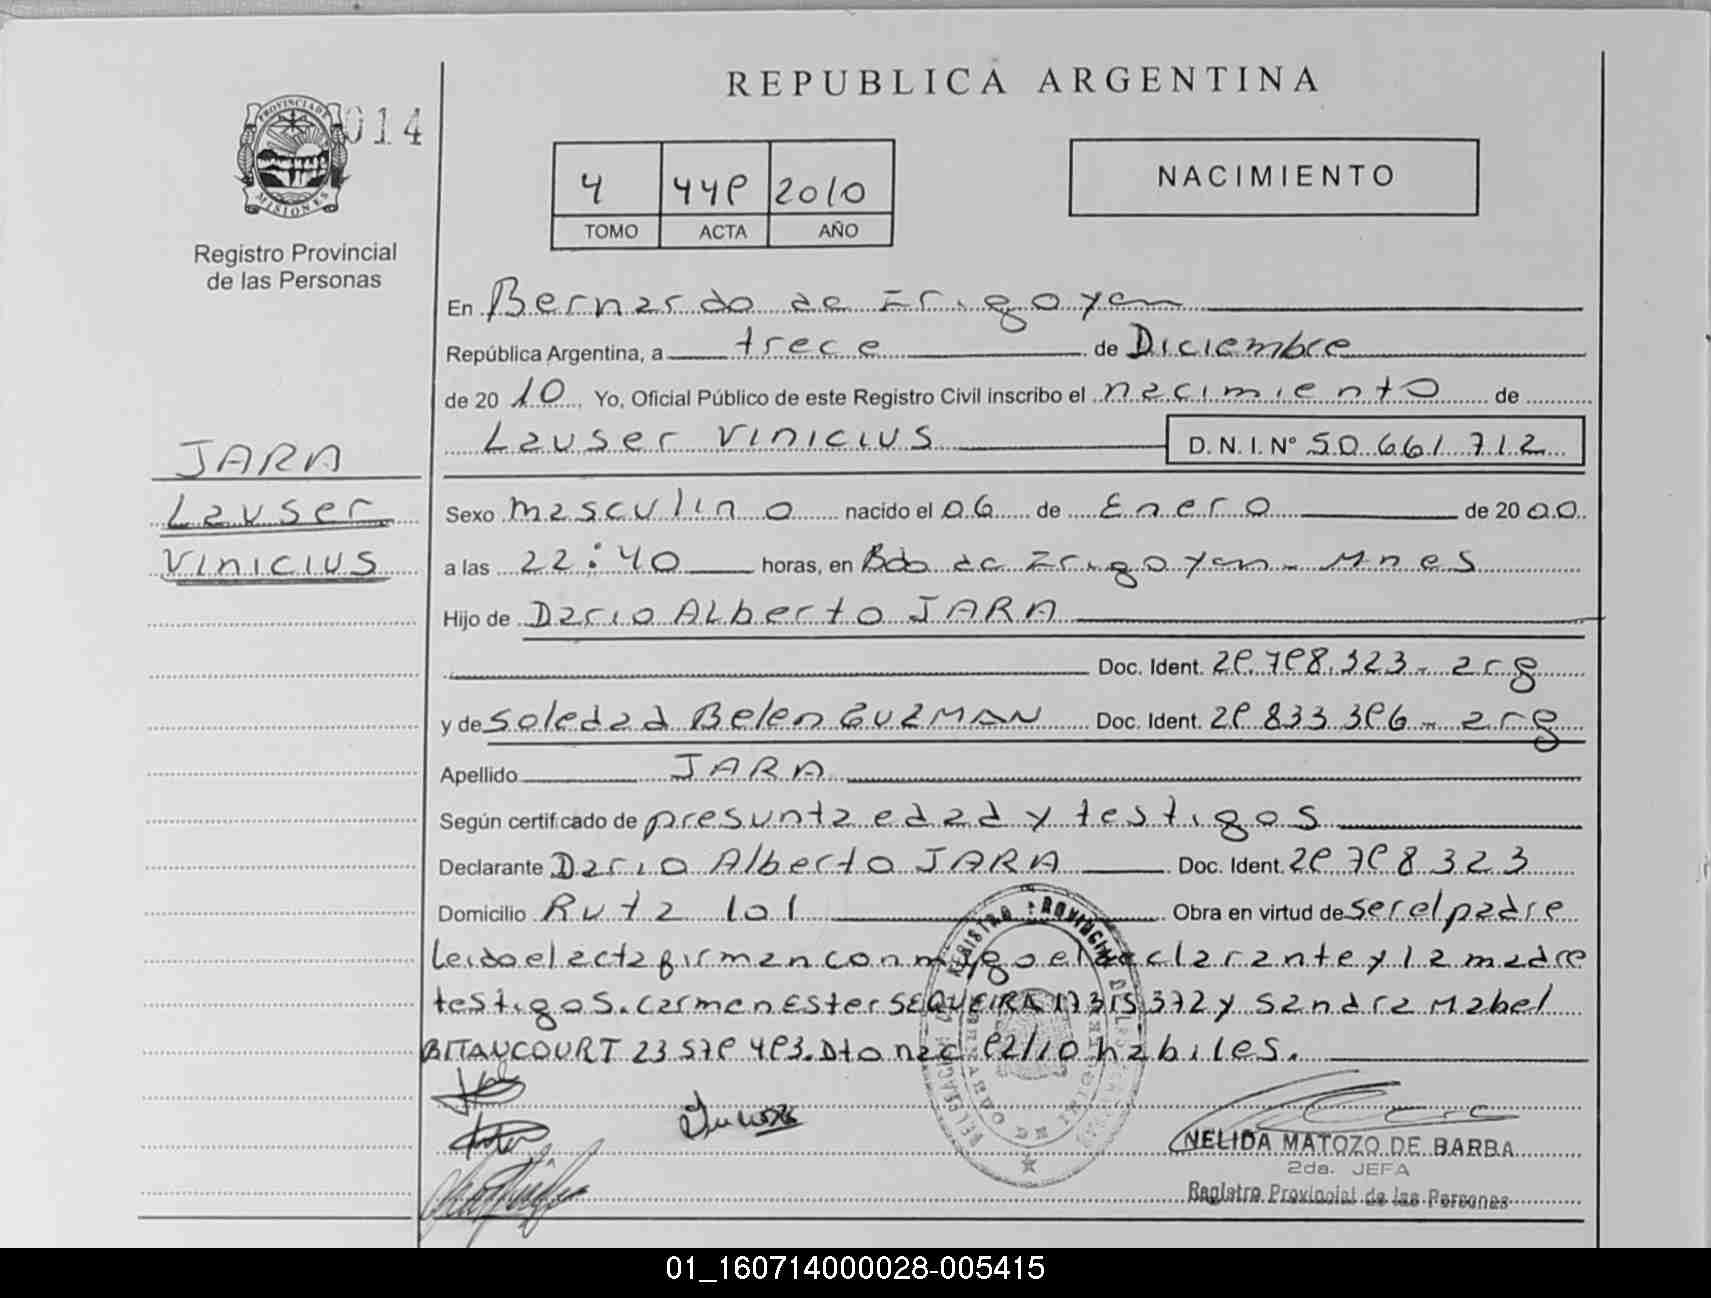 REPUBLICA ARGENTINA
014
PROVINCIA DE MISIONES
Registro Provincial
de las Personas
4 449 2010
TOMO ACTA AÑO
NACIMIENTO
En Bernardo de Irigoyen
República Argentina, a trece de Diciembre
de 20 10 , Yo, Oficial Público de este Registro Civil inscribo el nacimiento de
Lauser Vinicius D. N. I. N° 50.661.712
JARA
Lauser
Vinicius
Sexo masculino nacido el 06 de Enero de 20 00.
a las 22:40 horas, en Bdo de Irigoyen - Mnes
Hijo de Dario Alberto JARA
Doc. Ident. 29.798.323 - arg
y de Soledad Belen GUZMAN Doc. Ident. 29 833 396 - arg
Apellido JARA
Según certificado de presunta edad y testigos
Declarante Dario Alberto JARA Doc. Ident. 29 798 323
Domicilio Ruta 101 Obra en virtud de ser el padre
leido el acta firman conmigo el declarante y la madre
testigos. Carmen Ester SEQUEIRA 17315372 y Sandra Mabel
BITANCOURT 23 579 493. Dto nac 92/10 habiles.
NELIDA MATOZO DE BARBA
2da. JEFA
Registro Provincial de las Personas
01_160714000028-005415